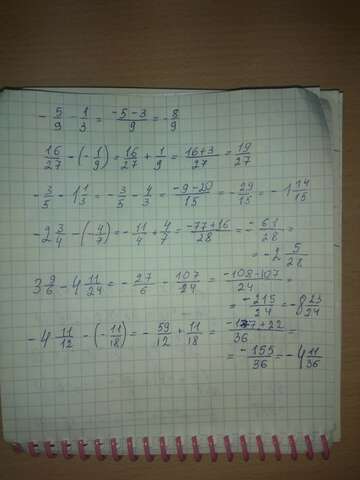 - 5/9 - 1/3 = (-5-3)/9 = - 8/9
16/27 - (- 1/9) = 16/27 + 1/9 = (16+3)/27 = 19/27
- 3/5 - 1 1/3 = - 3/5 - 4/3 = (-9-20)/15 = - 29/15 = - 1 14/15
- 2 3/4 - (- 4/7) = - 11/4 + 4/7 = (-77+16)/28 = - 61/28 =
= - 2 5/28
3 9/6 - 4 11/24 = - 27/6 - 107/24 = (-108-107)/24 =
= - 215/24 = - 8 23/24
- 4 11/12 - (- 11/18) = - 59/12 + 11/18 = (-177+22)/36 =
= - 155/36 = - 4 11/36